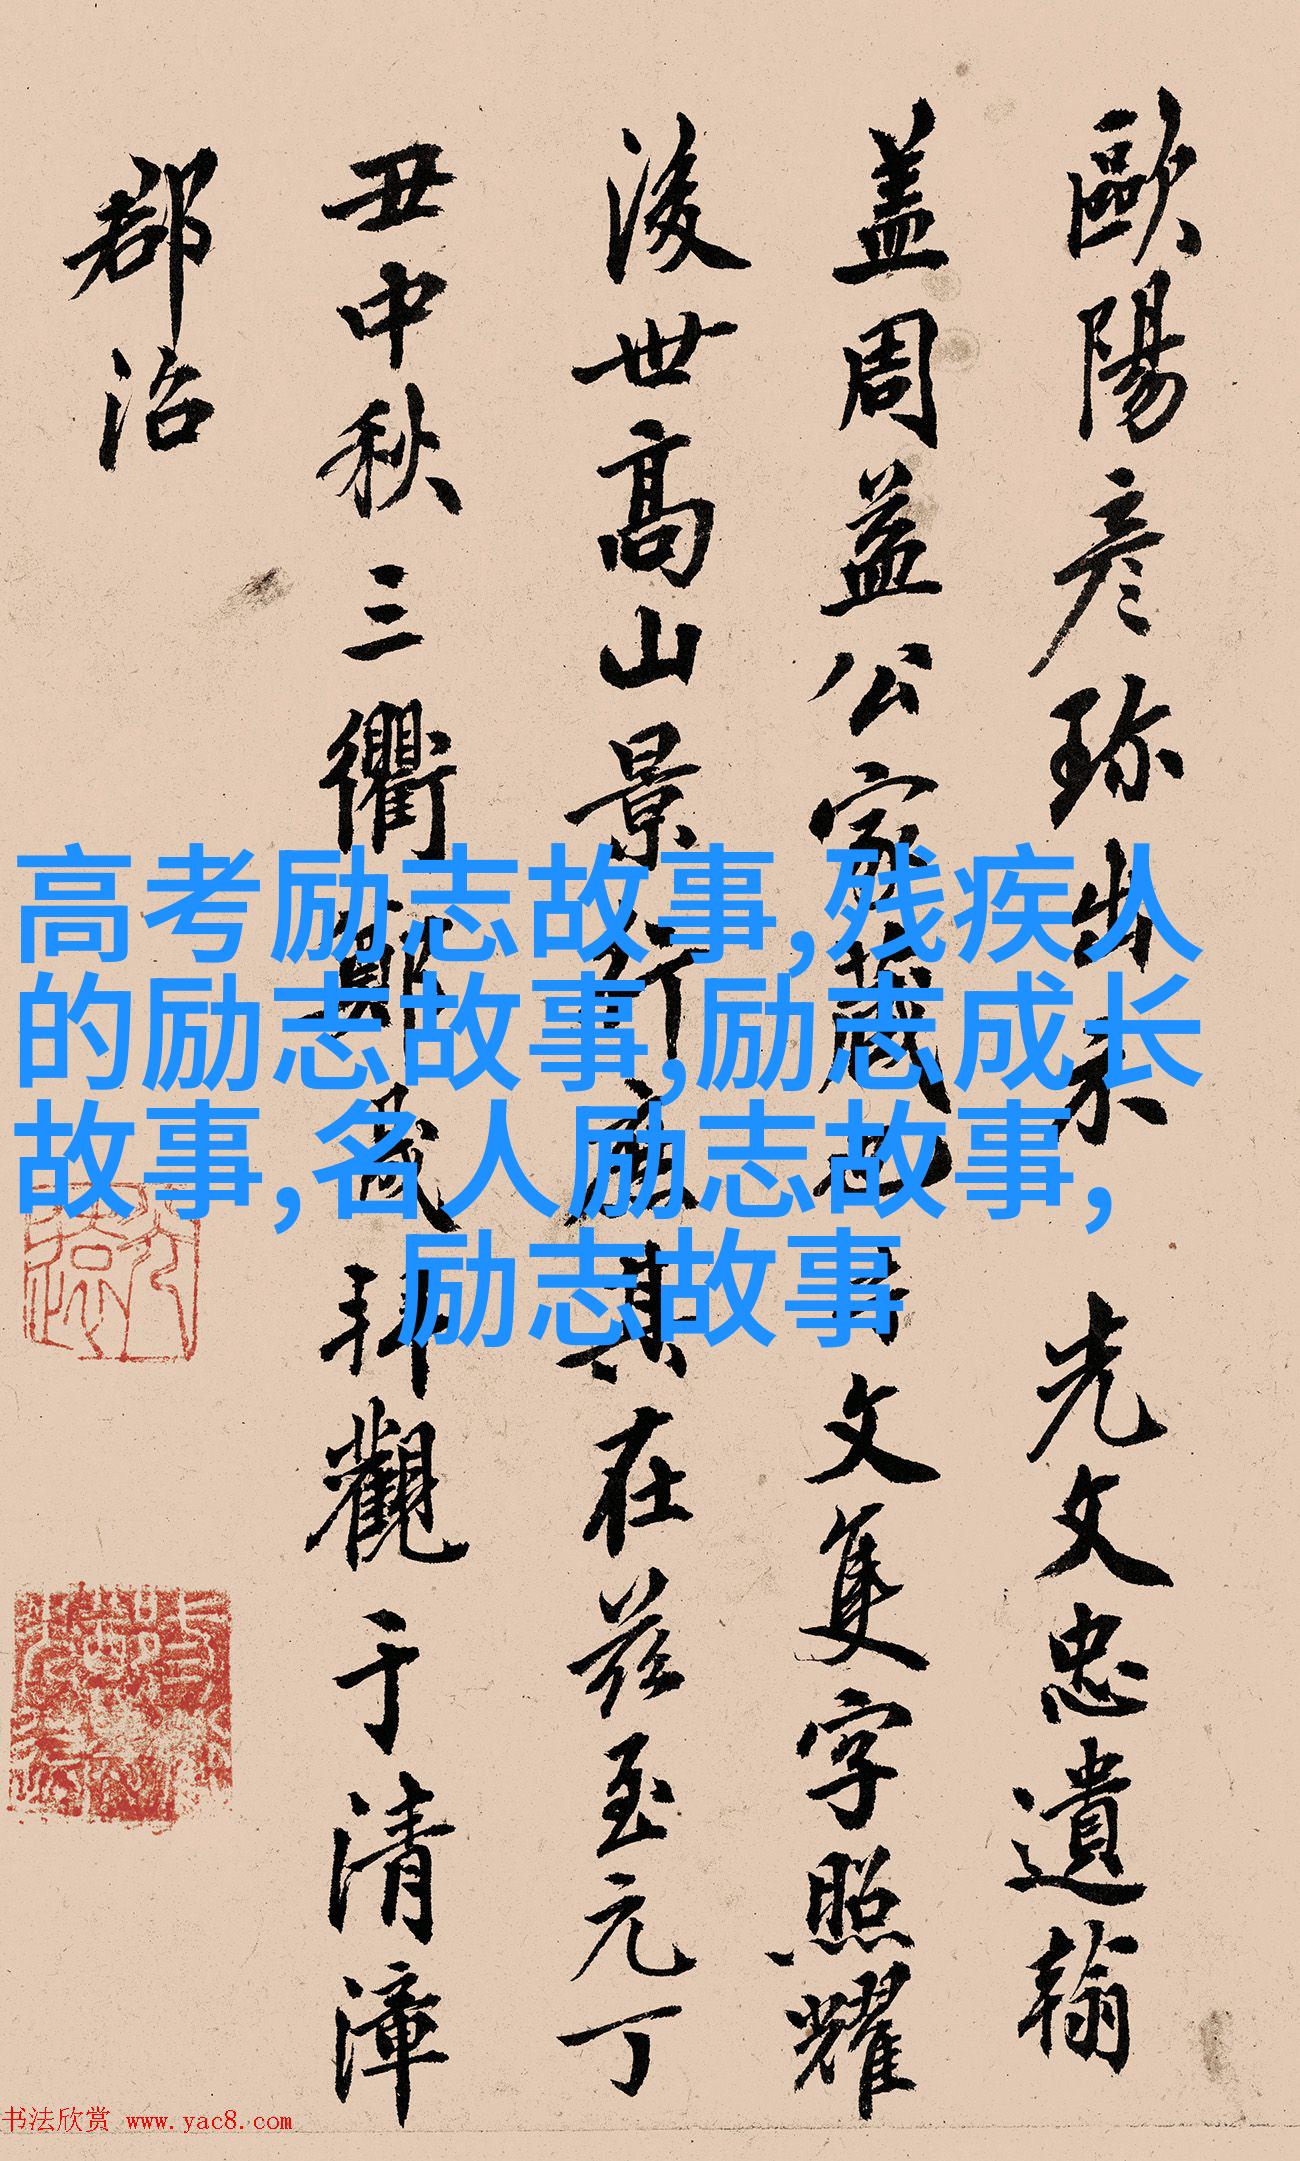 歐陽彦珎出示 光文忠遺翰
盖周益公家藏也 文隻字照耀
後世高山景行 其在兹至元丁
丑中秋三衢鄭 拜觀于清漳
郡治
高考励志故事,残疾人
的励志故事,励志成长
故事,名人励志故事,
励志故事
书法欣赏 www.yac8.com